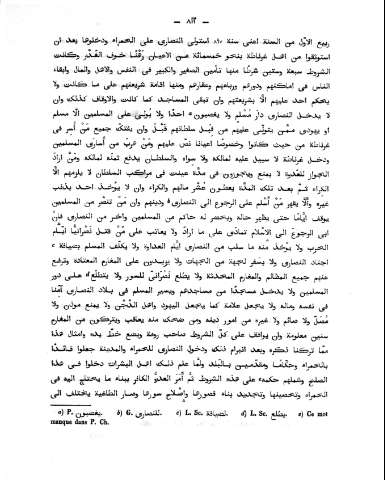 — ٨١٣ —
ربيع الاوّل من السنة اعنى سنة ٨٩٧ استولى النصارى على الحمراء ودخلوها بعد ان
استوثقوا من اهل غرناطة بنحو خمسمائة من الاعيان رهنًا خوف الغدر وكانت
الشروط سبعة وستّين شرطًا منها تأمين الصغير والكبير فى النفس والاهل والمال وابقاء
الناس فى اماكنهم ودورهم ورباعهم وعقارهم ومنها اقامة شريعتهم على ما كانت ولا
يحكم احد عليهم الّا بشريعتهم وان تبقى المساجد كما كانت والاوقاف كذلك وان
لا يدخل النصارى دار مسلم ولا يغصبون a احدًا ولا يُولَّى على المسلمين الّا مسلم
او يهودى ممّن يتولّى عليهم من قِبَل سلطانهم قبل وان يفتكّ جميع مَنْ أُسِر فى
غرناطة من حيث كانوا وخصوصًا اعيانًا نصّ عليهم ومَنْ هرب من أسارى المسلمين
ودخل غرناطة لا سبيل عليه لمالكه ولا سواه والسلطان يدفع ثمنه لمالكه ومَنْ اراد
الجواز للعدوة لا يمنع ويجوزون فى مدّة عيّنت فى مراكب السلطان لا يلزمهم الّا
الكراء ثمّ بعد تلك المدّة يعطون عُشْر مالهم والكراء وان لا يؤخذ احد بذنب
غيره وألّا يقهر مَنْ أسلم على الرجوع الى النصارى b ودينهم وان مَنْ تنصّر من المسلمين
يوقف أيّامًا حتى يظهر حاله ويحضر له حاكم من المسلمين وآخر من النصارى فإن
ابى الرجوع الى الاسلام تمادى على ما اراد ولا يعاتب على مَنْ قتل نصرانيًّا ايّام
الحرب ولا يؤخذ منه ما سلب من النصارى ايّام العداوة ولا يكلّف المسلم بضيافة c
اجناد النصارى ولا يسفّر لجهة من الجهات ولا يزيدون على المغارم المعتادة وترفع
عنهم جميع المظالم والمغارم المحدثة ولا يطلع نصرانىّ للسور ولا يتطلّع d على دور
المسلمين ولا يدخل مسجدًا من مساجدهم ويسير المسلم فى بلاد النصارى آمنًا
فى نفسه وماله ولا يجعل علامة كما يجعل اليهود واهل الدَّجْن ولا يمنع مؤذن ولا
مُصَلٍّ ولا صائم ولا غيره من امور دينه ومن ضحك منه يعاقب ويتركون من المغارم
سنين معلومة وان يوافق على كلّ الشروط صاحب رومة ويضع خطّ يده وامثال هذا
ممّا تركنا ذكره وبعد انبرام ذلك ودخول النصارى للحمراء والمدينة جعلوا قائدًا
بالحمراء وحكّامًا ومقدّمين بالبلد ولمّا علم ذلك اهل البشرات دخلوا فى هذا
الصلح وشملهم حكمه على هذه الشروط ثمّ أمر العدوّ الكافر ببناء ما يحتاج اليه فى
الحمراء وتحصينها وتجديد بناء قصورها وإصلاح سورها وصار الطاغية يختلف الى
a) P. يغصبون. b) G. للنصارى. c) L. Sc. لضيافة. d) L. Sc. يطلع. e) Ce mot
manque dans P. Ch.